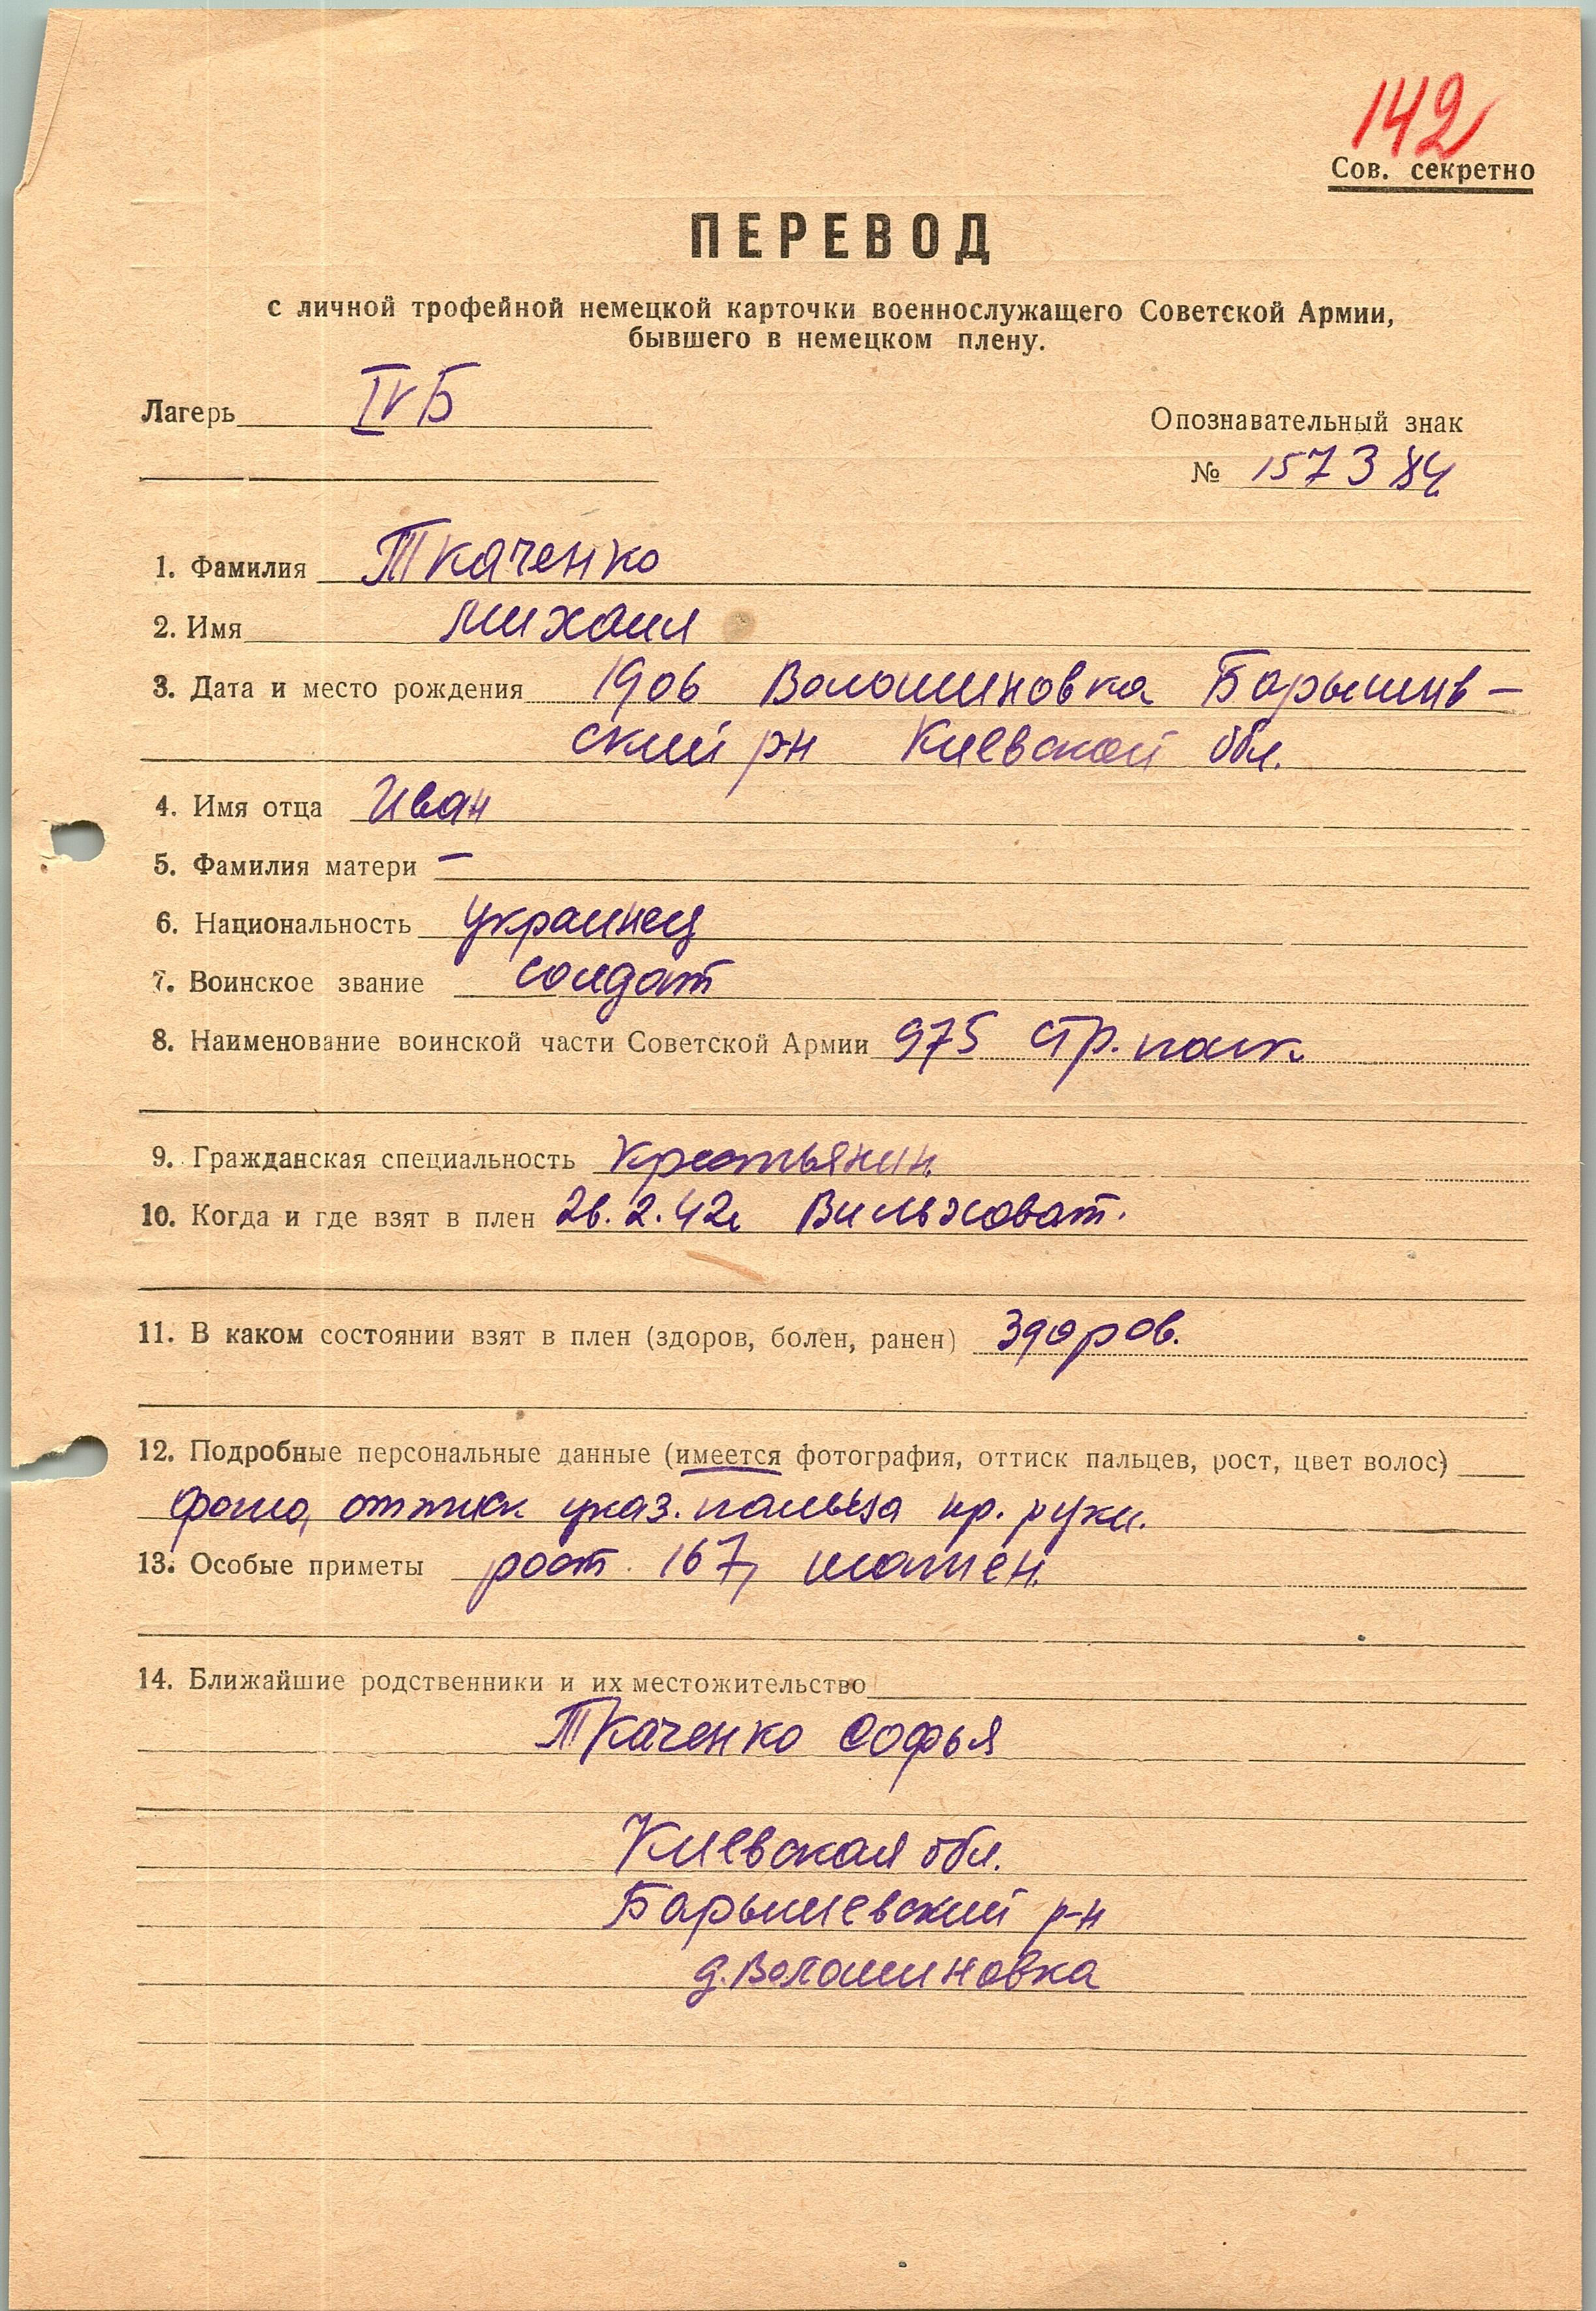 142
Сов. секретно
ПЕРЕВОД
с личной трофейной немецкой карточки военнослужащего Советской Армии,
бывшего в немецком плену.
Лагерь IVБ
Опознавательный знак
№ 157384
1. Фамилия Ткаченко
2. Имя Михаил
3. Дата и место рождения 1906 Волошиновка Барышив-
ский р-н Киевской обл.
4. Имя отца Иван
5. Фамилия матери —
6. Национальность украинец
7. Воинское звание солдат
8. Наименование воинской части Советской Армии 975 стр. полк.
9. Гражданская специальность крестьянин.
10. Когда и где взят в плен 26.2.42г Вильховат.
11. В каком состоянии взят в плен (здоров, болен, ранен) здоров.
12. Подробные персональные данные (имеется фотография, оттиск пальцев, рост, цвет волос)
фото, оттиск указ. пальца пр. руки.
13. Особые приметы рост 167, шатен.
14. Ближайшие родственники и их местожительство
Ткаченко Софья
Киевская обл.
Барышевский р-н
д. Волошиновка